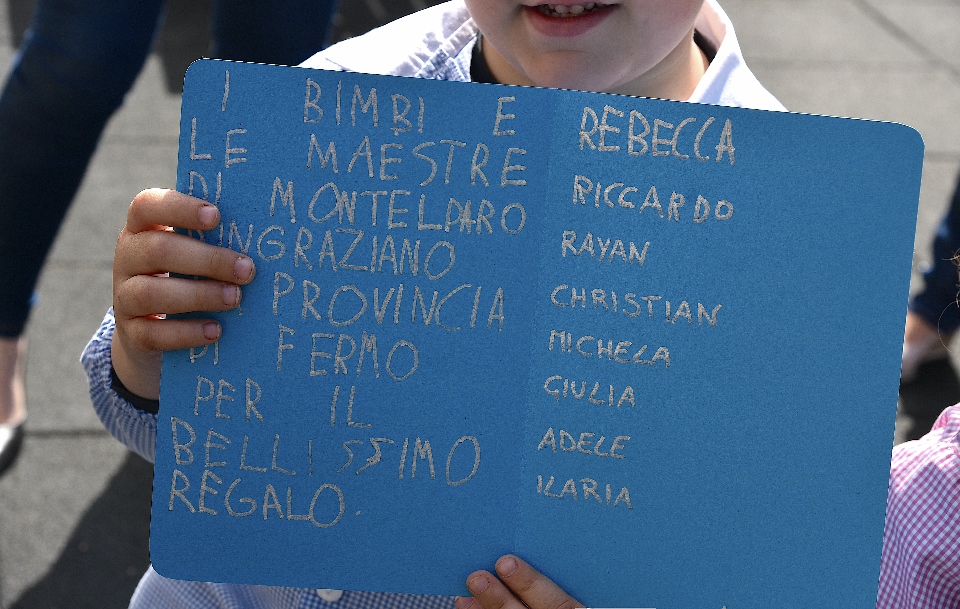 I BIMBI E
LE MAESTRE
DI MONTELPARO
RINGRAZIANO
PROVINCIA
DI FERMO
PER IL
BELLISSIMO
REGALO.
REBECCA
RICCARDO
RAYAN
CHRISTIAN
MICHELA
GIULIA
ADELE
ILARIA